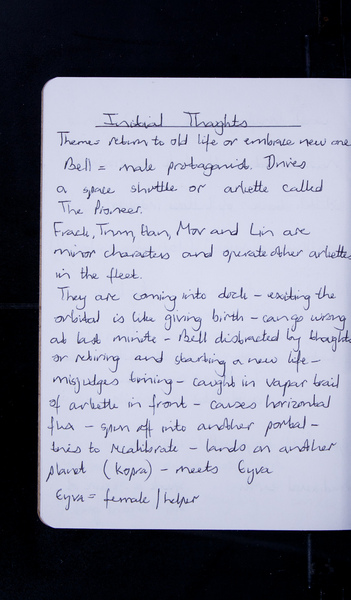 Initial Thoughts
Theme = return to old life or embrace new one
Bell = male protagonist. Drives
a space shuttle or arkette called
The Pioneer.
Frack, Trum, Han, Mor and Lin are
minor characters and operate other arkettes
in the fleet.
They are coming into dock - exiting the
orbital is like giving birth - can go wrong
at last minute - Bell distracted by thoughts
or retiring and starting a new life -
misjudges timing - caught in vapar trail
of arkette in front - causes horizontal
flux - spin off into another portal -
tries to recalibrate - lands on another
planet (Kopra) - meets Eyva
Eyva = female / helper